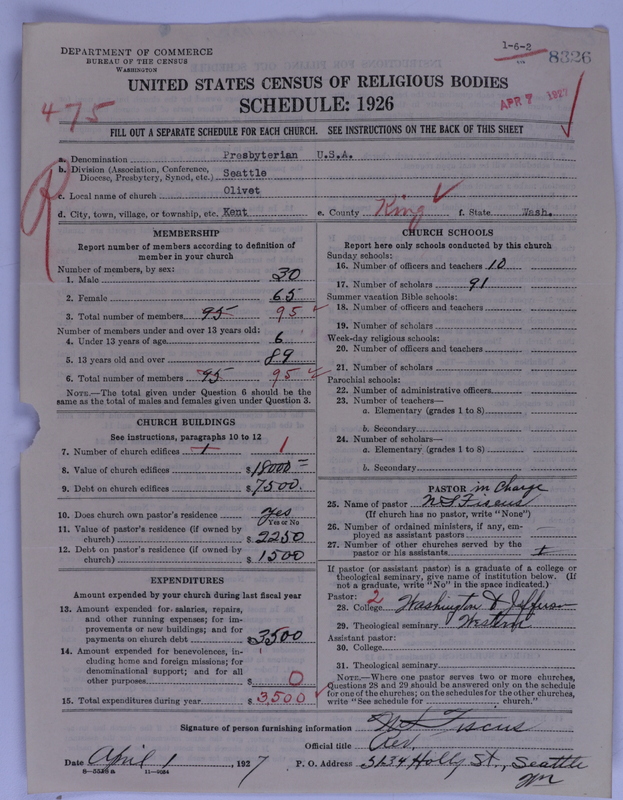 DEPARTMENT OF COMMERCE
BUREAU OF THE CENSUS
WASHINGTON
1-6-2
8326
UNITED STATES CENSUS OF RELIGIOUS BODIES
SCHEDULE: 1926
475
APR 7 1927
FILL OUT A SEPARATE SCHEDULE FOR EACH CHURCH. SEE INSTRUCTIONS ON THE BACK OF THIS SHEET
a. Denomination Presbyterian U.S.A.
b. Division (Association, Conference, Diocese, Presbytery, Synod, etc.) Seattle
c. Local name of church Olivet
d. City, town, village, or township, etc. Kent e. County King f. State Wash.
R
MEMBERSHIP
Report number of members according to definition of
member in your church
Number of members, by sex:
1. Male 30
2. Female 65
3. Total number of members 95 95
Number of members under and over 13 years old:
4. Under 13 years of age 6
5. 13 years old and over 89
6. Total number of members 95 95
NOTE.—The total given under Question 6 should be
same as the total of males and females given under Question 3.
CHURCH BUILDINGS
See instructions, paragraphs 10 to 12
7. Number of church edifices 1 1
8. Value of church edifices $18000=
9. Debt on church edifices $7500.
10. Does church own pastor's residence? yes
Yes or No
11. Value of pastor's residence (if owned by
church) $2250
12. Debt on pastor's residence (if owned by
church) $1500
EXPENDITURES
Amount expended by your church during last fiscal year
13. Amount expended for salaries, repairs,
and other running expenses; for im-
provements or new buildings; and for
payments on church debt $3500
14. Amount expended for benevolences, in-
cluding home and foreign missions; for
denominational support; and for all
other purposes $0
15. Total expenditures during year $3,500
CHURCH SCHOOLS
Report here only schools conducted by this church
Sunday schools:
16. Number of officers and teachers 10
17. Number of scholars 91
Summer vacation Bible schools:
18. Number of officers and teachers
19. Number of scholars
Week-day religious schools:
20. Number of officers and teachers
21. Number of scholars
Parochial schools:
22. Number of administrative officers
23. Number of teachers—
a. Elementary (grades 1 to 8)
b. Secondary
24. Number of scholars—
a. Elementary (grades 1 to 8)
b. Secondary
PASTOR in Charge
25. Name of pastor N S Fiscus
(If church has no pastor, write "None")
26. Number of ordained ministers, if any, em-
ployed as assistant pastors
27. Number of other churches served by the
pastor or his assistants
If pastor (or assistant pastor) is a graduate of a college or
theological seminary, give name of institution below. (If
not a graduate, write "No" in the space indicated.)
Pastor: 2
28. College Washington & Jefferson
29. Theological seminary Western
Assistant pastor:
30. College
31. Theological seminary
NOTE.—Where one pastor serves two or more churches,
Questions 28 and 29 should be answered only on the schedule
for one of the churches; on the schedules for the other churches,
write "See schedule for church."
Signature of person furnishing information N S Fiscus
Official title Rev.
Date April 1, 1927 P. O. Address 3134 Holly St., Seattle
Wn
8—5539a 11—9024